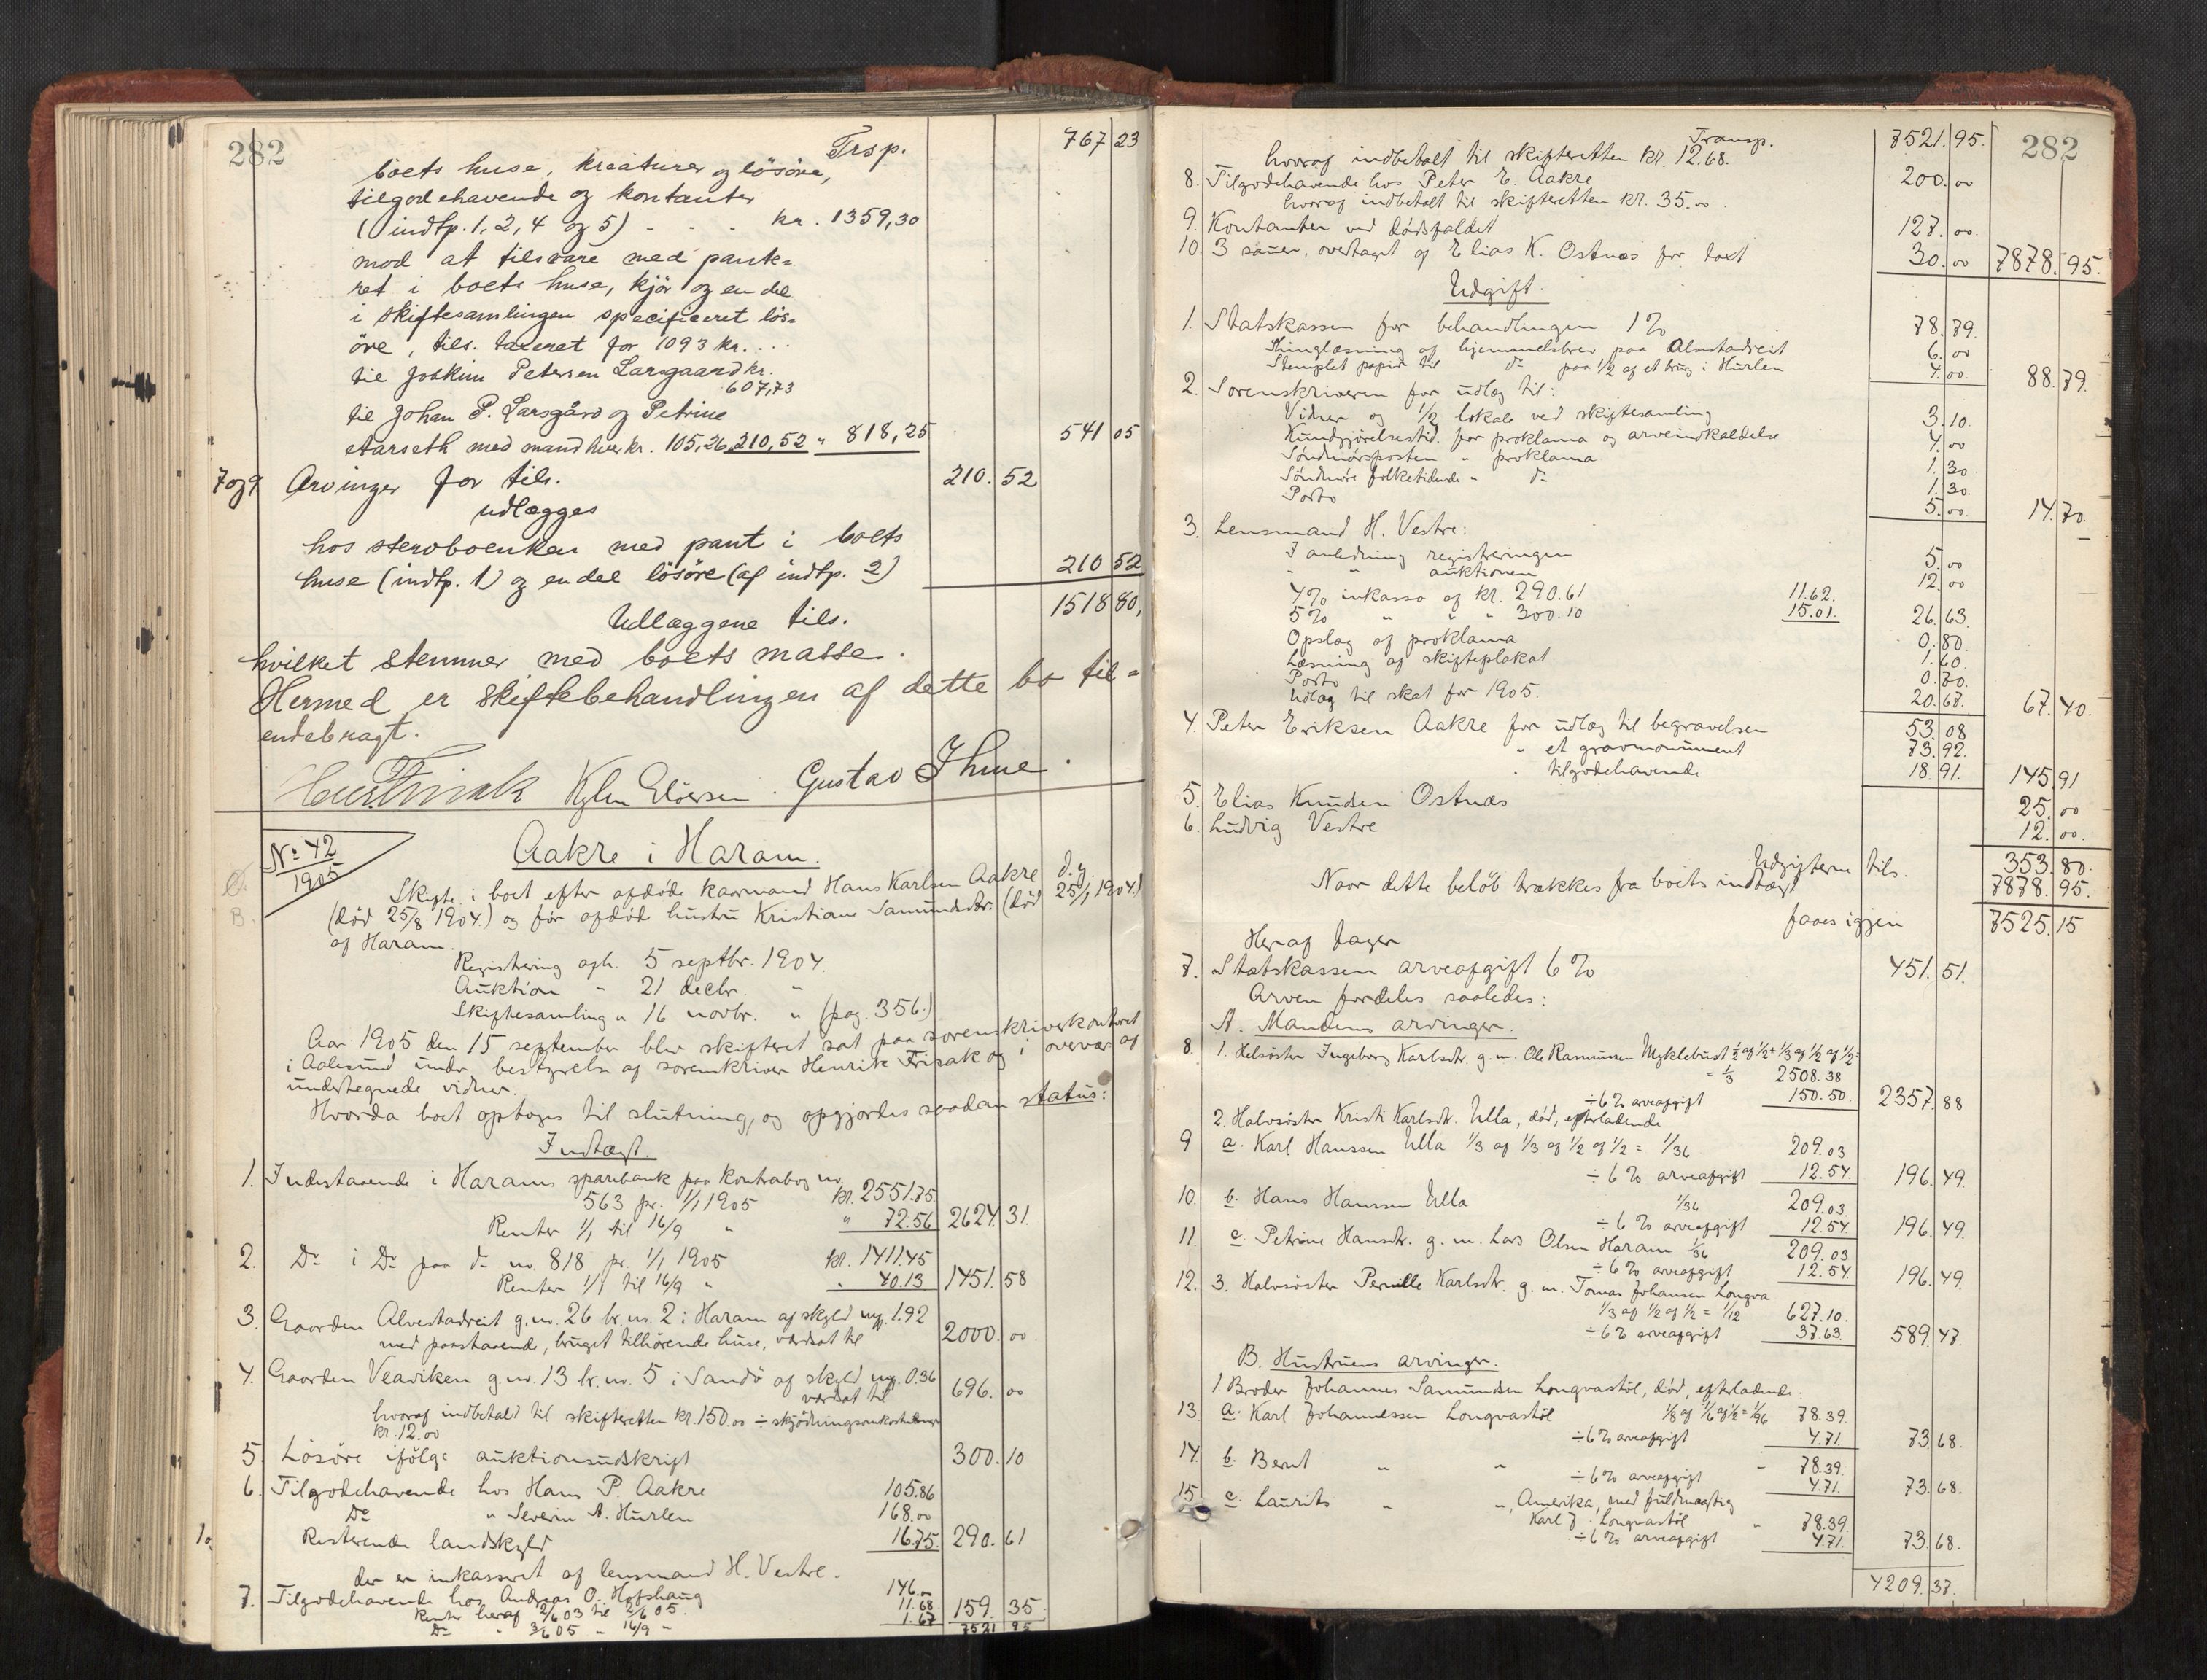 282
Trsp. 767 23
boets huse, kreaturer og lösöre,
tilgodehavende og kontanter
(indtp. 1, 2, 4 og 5) - - - kr. 1359,30
mod at tilsvare med pante=
ret i boets huse, kjör og en del
i skiftesamlingen specificeret lös=
öre, tils. taxeret for 1093 kr. ...
til Joakim Petersen Larsgaard kr.
607,73
til Johan P. Larsgård og Petrine
Aarseth med mand hver kr. 105,26 210,52 " 818,25 541 05
7 og 9 Arvinger for tils. 210. 52
udlægges
hos stervboenken med pant i boets
huse (indtp. 1) og en del lösöre (af indtp. 2) 210 52
Udlæggene tils. 1518 80,
hvilket stemmer med boets masse.
Hermed er skiftebehandlingen af dette bo til=
endebragt.
Gustav Thue.
No. 42
1905
Aakre i Haram.
Skifte i boet efter afdöde kaarmand Hans Karlsen Aakre d.y.
(död 25/8 1904.) og för afdöd hustru Kristiane Samundsdtr. (död 25/1 1904.)
af Haram.
Registrering afh. 5 septbr. 1904.
Auktion " 21 decbr. "
Skiftesamling " 16 novbr. " (pag. 356.)
Aar 1905 den 15 september blev skifteret sat paa sorenskriverkontoret
i Aalesund under bestyrelse af sorenskriver Henrik Frisak og i overvær af
undertegnede vidner.
Hvorda boet optoges til slutning, og opgjordes saadan status:
Indtægt.
1. Indestaaende i Harams sparebank paa kontrabog no.
563 pr. 1/1 1905 kr. 2551.75
Renter 1/1 til 16/9 " " 72.56 2624 31.
2. Do i Do paa do no. 818 pr. 1/1 1905 kr. 1411.45
Renter 1/1 til 16/9 " " 40.13 1451. 58
3. Gaarden Alvestadreit g.no. 26 br. no. 2 i Haram af skyld ny. 1.92
med paastaaende, bruget tilhörende huse, værdsat til 2000. 00
4. Gaarden Veaviken g.no. 13 br. no. 5 i Sandö af skyld ny. 0.36
værdsat til 696. 00
hvoraf indbetalt til skifteretten kr. 150.00 ÷ skjödningsomkostninger
kr. 12.00
5. Lösöre ifölge auktionsudskrift 300. 10
6. Tilgodehavende hos Hans P. Aakre 105.86
Do " Severin A. Hurlen 168.00
Resterende landskyld 16.75 290. 61
der er inkasseret af lensmand H. Vestre.
7. Tilgodehavende hos Andreas O. Hofshaug 146.00
Renter heraf 2/6 03 til 2/6 05. 11.68 159. 35
Do " 3/6 05 - 16/9 - 1.67 7521 95
Transp. 7521. 95. 282
hvoraf indbetalt til skifteretten kr. 12.68.
8. Tilgodehavende hos Peter E. Aakre 200. 00
hvoraf indbetalt til skifteretten kr. 35.00.
9. Kontanter ved dödsfaldet 127. 00.
10. 3 sauer, overtaget af Elias K. Ostnæs for taxt 30. 00 7878. 95.
Udgift.
1. Statskassen for behandlingen 1 % 78. 79.
Thinglæsning af hjemmelsbrev paa Alvestadreit 6. 00
Stemplet papir til do paa 1/2 af et brug i Hurlen 4. 00. 88. 79.
2. Sorenskriveren for udlæg til:
Vidner og 1/2 lokale ved skiftesamling 3. 10.
Kundgjørelsestid. for proklama og arveindkaldelse 4. 00
Søndmørsposten " proklama 1. 30
Søndmøre folketidende " do 1. 30.
Porto 5. 00. 14. 70.
3. Lensmand H. Vestre:
I anledning registreringen 5. 00
" " auktionen 12. 00
4% inkasso af kr. 290.61 11.62.
5% " " " 300.10 15.01. 26. 63.
Opslag af proklama 0. 80.
Læsning af skifteplakat 1. 60.
Porto 0. 70.
Udlæg til skat for 1905. 20. 67. 67. 40.
4. Peter Eriksen Aakre for udlæg til begravelsen 53. 08
" et gravmonument 73. 92.
" tilgodehavende 18. 91. 145. 91
5. Elias Knudsen Ostnæs 25. 00
6. Ludvig Vestre 12. 00.
Udgifterne tils. 353. 80.
Naar dette beløb trækkes fra boets indtægt 7878. 95.
faaes igjen 7525. 15
Heraf tager
7. Statskassen arveafgift 6 % 451. 51.
Arven fordeles saaledes:
A. Mandens arvinger.
8. 1. Helsøster Ingeborg Karlsdtr. g. m. Ole Rasmussen Myklebust 1/2 af 1/2 + 1/3 af 1/2 af 1/2 =
= 1/3 2508.38
÷ 6% arveafgift 150.50. 2357. 88
2. Halvsøster Kristi Karlsdtr. Ulla, död, efterladende
9 a. Karl Hanssen Ulla 1/3 af 1/3 af 1/2 af 1/2 = 1/36 209.03
÷ 6% arveafgift 12.54. 196. 49.
10. b. Hans Hanssen Ulla 1/36 209.03.
÷ 6% arveafgift 12.54. 196. 49.
11. c. Petrine Hansdtr. g. m. Lars Olsen Haram 1/36 209.03
÷ 6% arveafgift 12.54. 196. 49.
12. 3. Halvsøster Pernille Karlsdtr. g. m. Tomas Johansen Longva
1/3 af 1/2 af 1/2 = 1/12 627.10.
÷ 6% arveafgift 37.63. 589. 47.
B. Hustruens arvinger.
1. Broder Johannes Samundsen Longvastøl, död, efterladende:
13. a. Karl Johannessen Longvastøl 1/8 af 1/6 af 1/2 = 1/96 78.39.
÷ 6% arveafgift 4.71. 73. 68.
14. b. Bernt " " - 78.39.
÷ 6% arveafgift 4.71. 73. 68.
15. c. Laurits " ", Amerika, med fuldmægtig
Karl J. Longvastøl " 78.39.
÷ 6% arveafgift 4.71. 73. 68.
4209. 37.